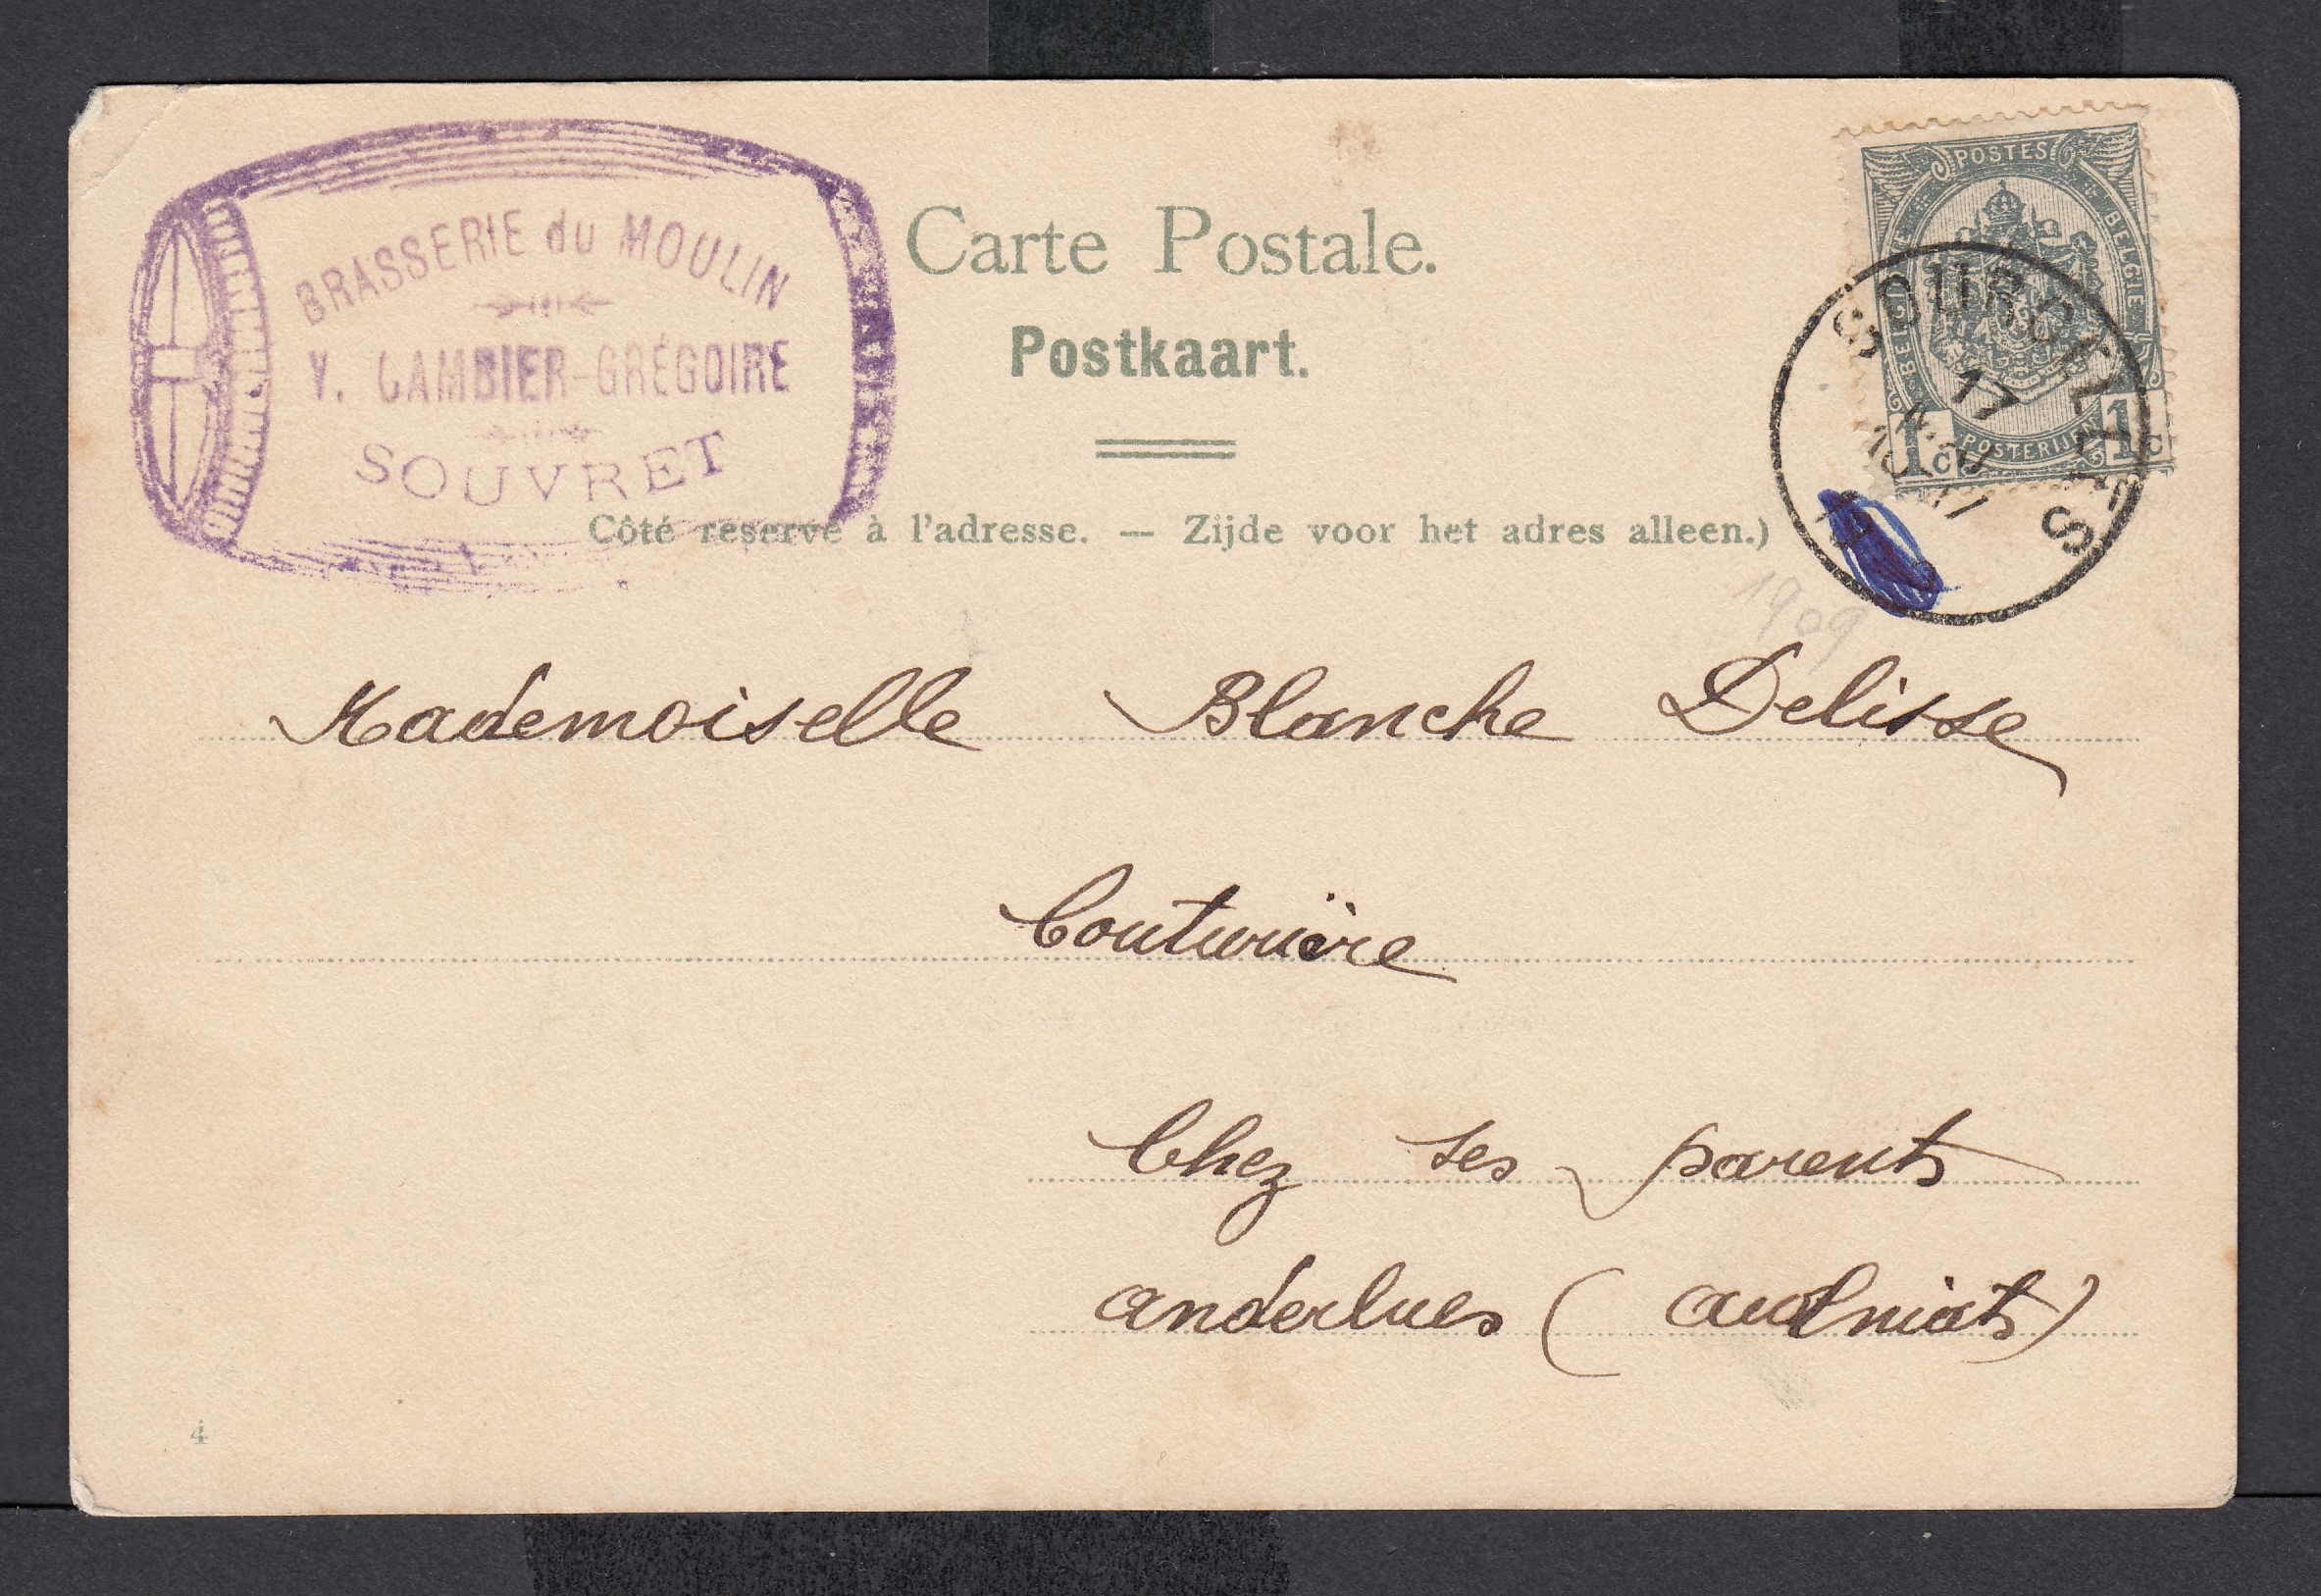 BRASSERIE du MOULIN
V. CAMBIER-GRÉGOIRE
SOUVRET
Carte Postale.
Postkaart.
Côté réservé à l'adresse. — Zijde voor het adres alleen.)
POSTES
BELGIQUE
BELGIE
POSTERIJEN
1 C
1 C
COURCELLES
17
1909
Mademoiselle Blanche Delisse
Couturière
Chez ses parents
anderlues (aulniats)
4